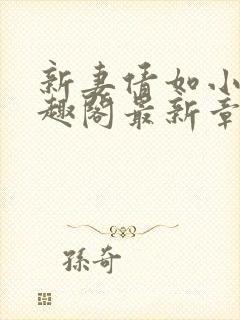 新妻情如小
趣阁最新章
孫奇